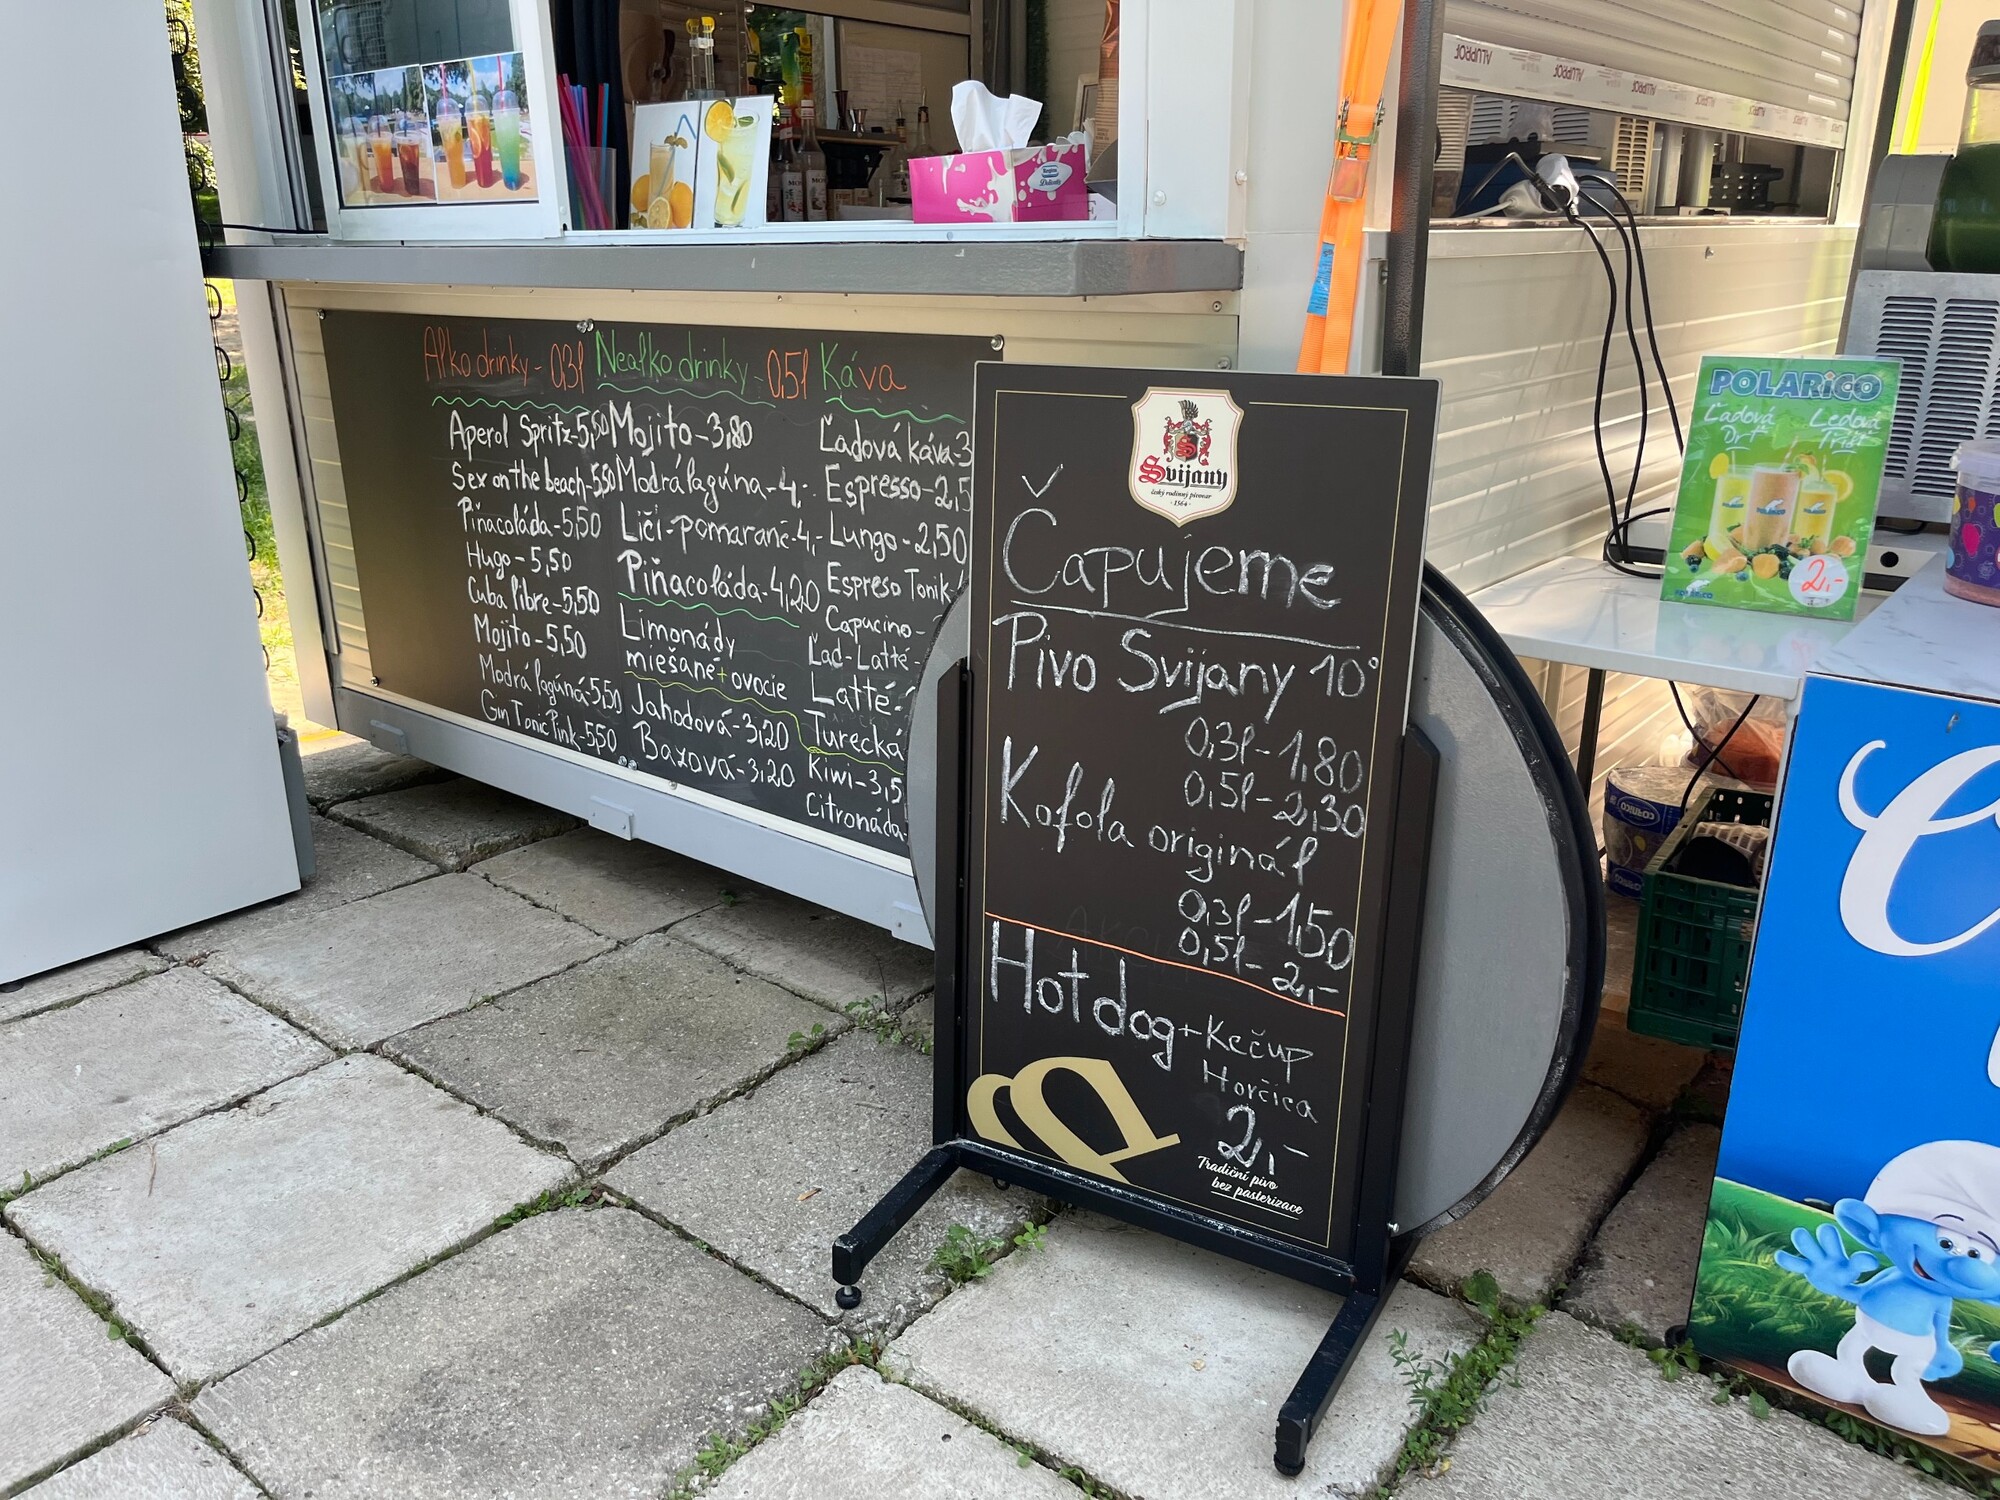 Alko drinky - 0,3l
Aperol Spritz-5,50
Sex on the beach-5,50
Piňacoláda-5,50
Hugo-5,50
Cuba libre-5,50
Mojito-5,50
Modrá lagúna-5,50
Gin Tonic Pink-5,50
Nealko drinky - 0,5l
Mojito-3,80
Modrá lagúna-4,-
Ličí-pomaranč-4,-
Piňacoláda-4,20
Limonády
miešané+ovocie
Jahodová-3,20
Bazová-3,20
Káva
Ľadová káva-3
Espresso-2,5
Lungo-2,50
Espreso Tonik-
Capucino-
Ľad-Latté-
Latté-
Turecká
Kiwi-3,5
Citronáda-
Svijany
český rodinný pivovar
- 1564 -
Čapujeme
Pivo Svijany 10°
0,3l-1,80
0,5l-2,30
Kofola originál
0,3l-1,50
0,5l-2,-
Hotdog+Kečup
Horčica
2,-
Tradiční pivo
bez pasterizace
ALUPROF ALUPROF ALUPROF ALUPROF
POLARiCO
Ľadová Drť
Ledová Tříšť
2,-